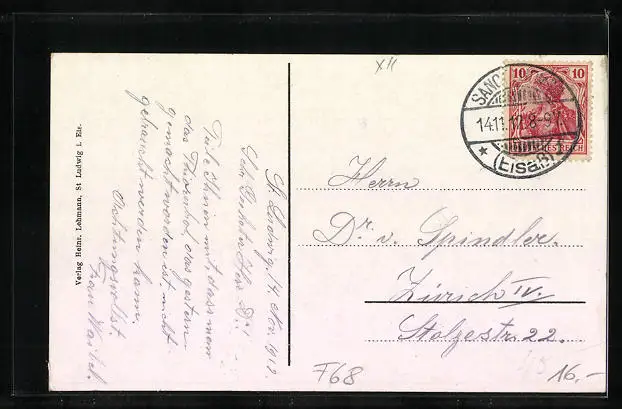 St. Ludwig, 14. Nov. 1912.
Sehr Geehrter Herr Dr!
Teile Ihnen mit, dass mein
das gestern
gemacht worden ist, nicht
gebraucht werden kann.
Achtungsvollst
Frau
Verlag Heinr. Lehmann, St Ludwig i. Els.
XII
10 10
SANCT
14.11.12. 8-9V.
* (Elsaß)
DEUTSCHES REICH
Herrn
Dr. v. Spindler.
Zürich IV.
Stolzestr. 22.
F68
16.-